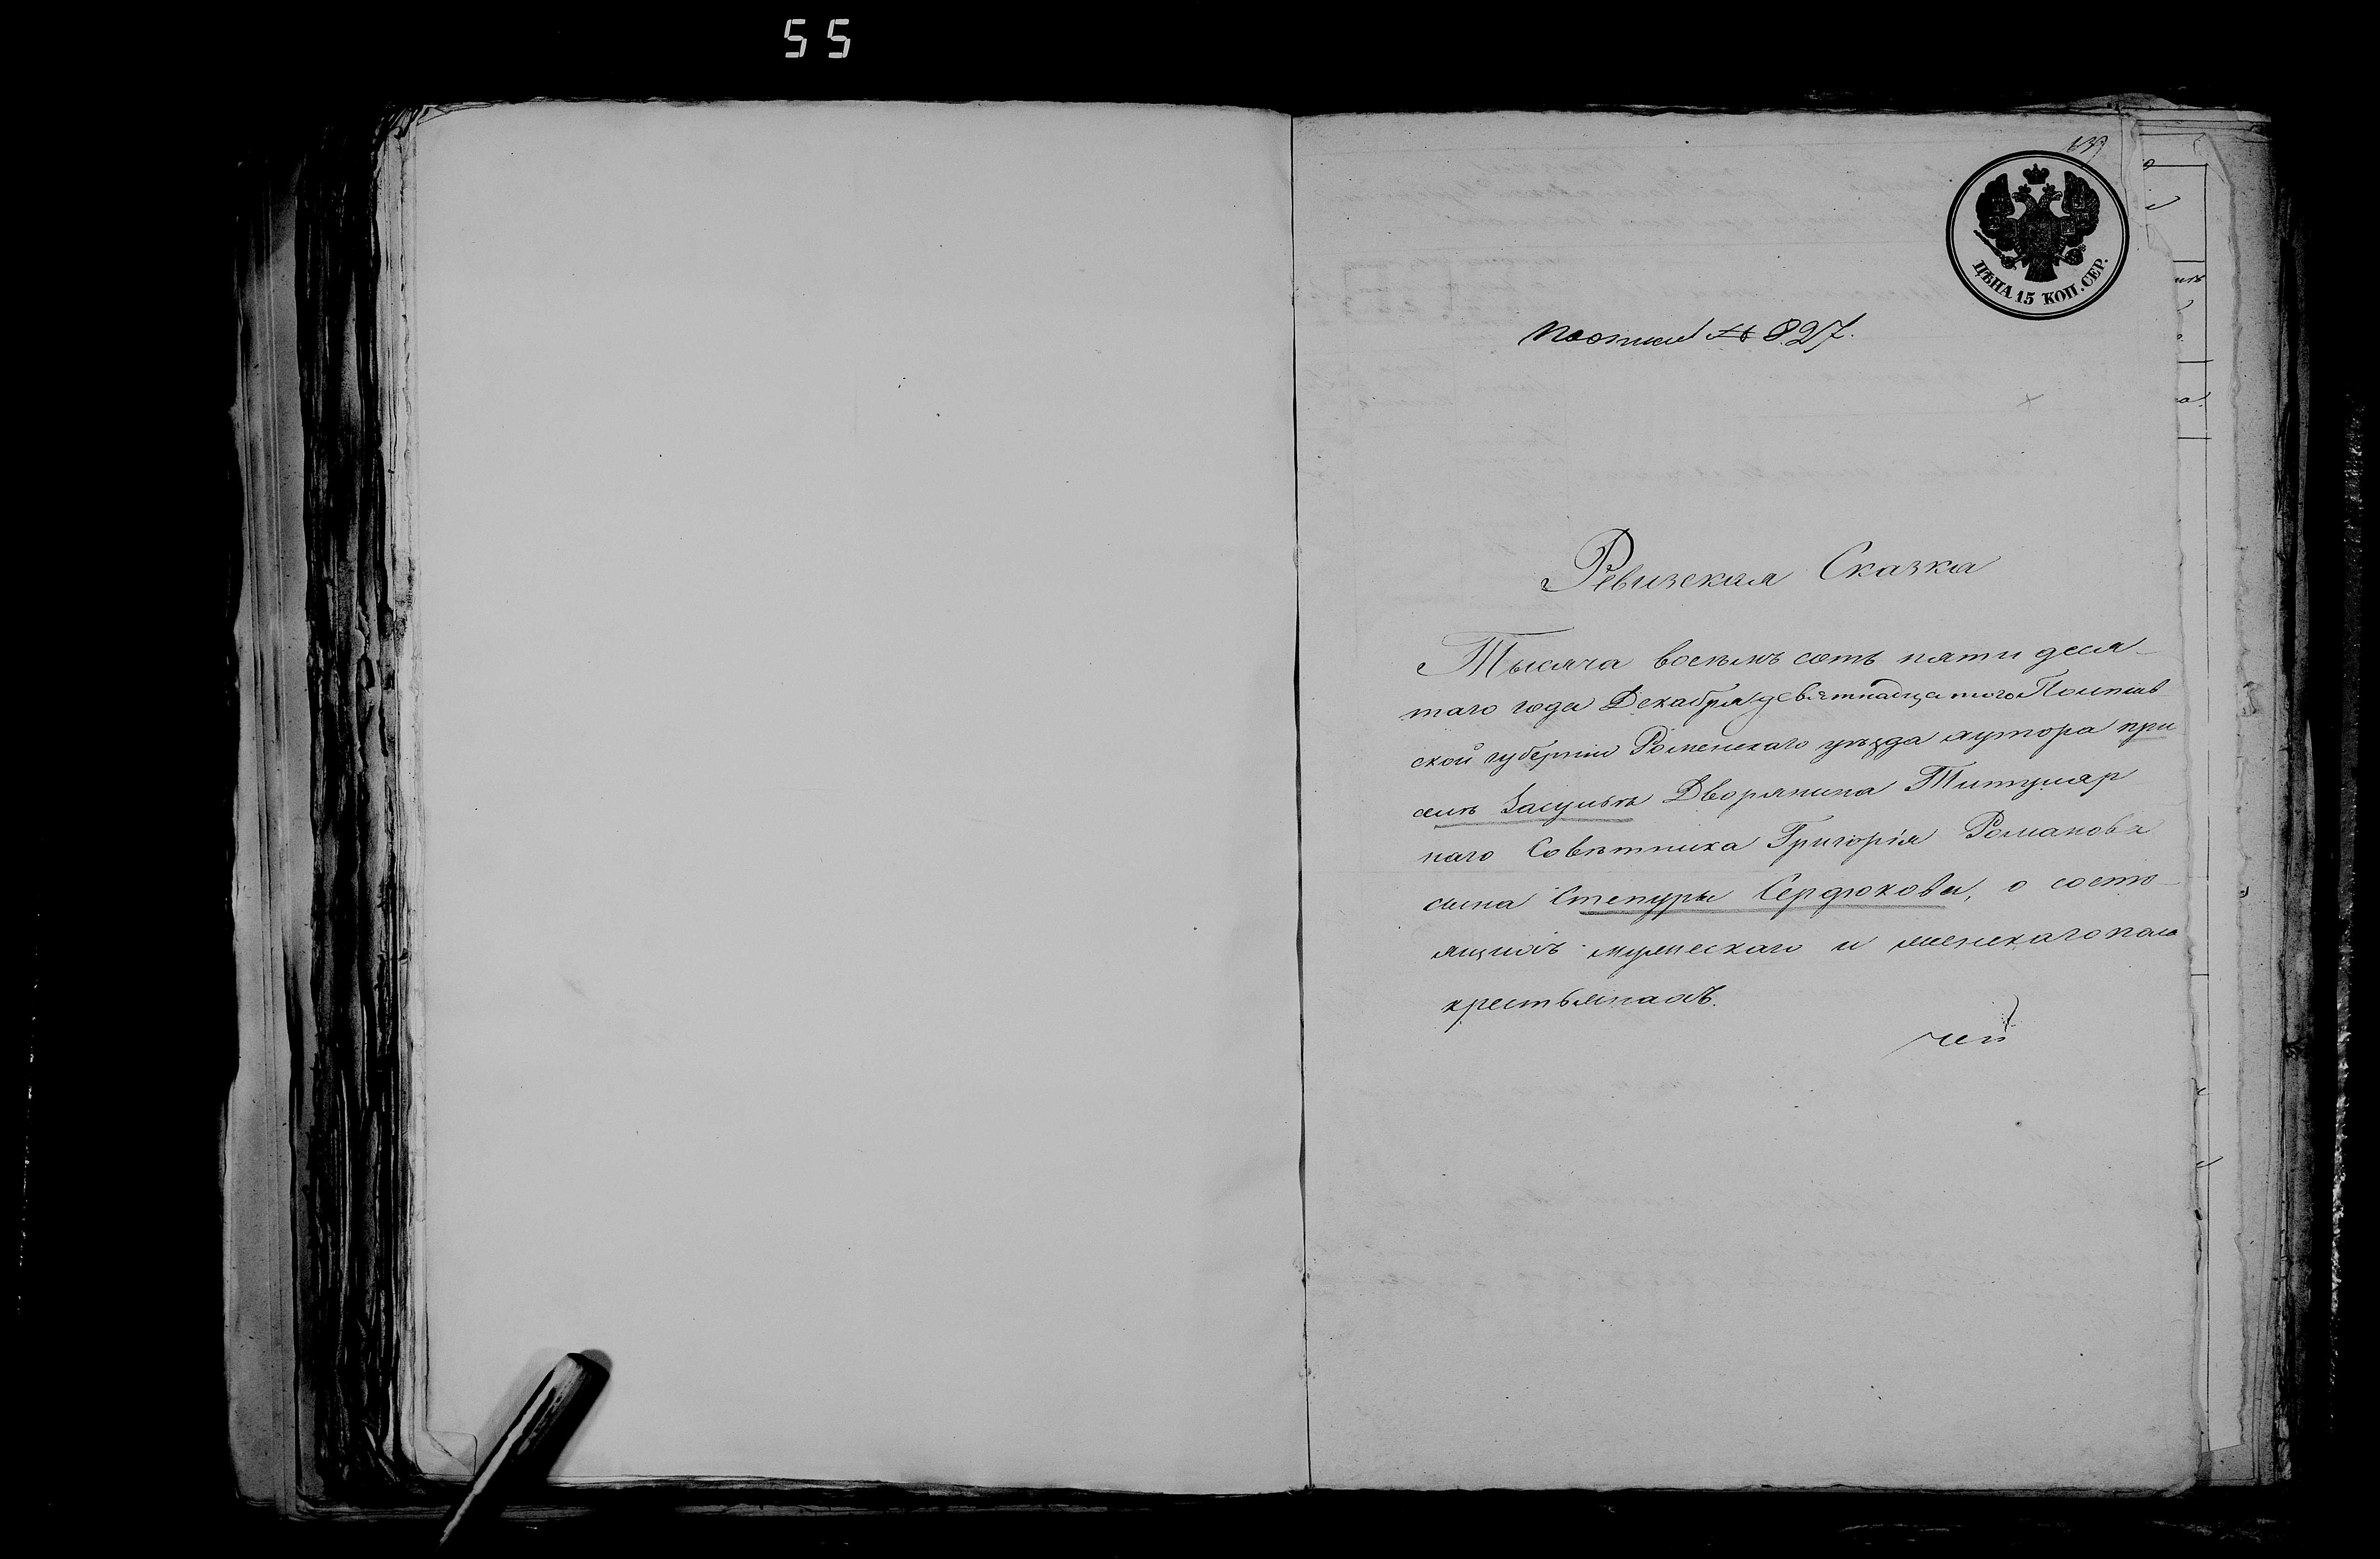 55
ЦѢНА 15 КОП. СЕР.
По описи № 827.
Ревизская Сказка
Тысяча восемь сотъ пяти деся
таго года Декабря девятнадцатого Полтав
ской губернии Роменскаго уѣзда хутора при
селѣ Засульѣ Дворянина Титуляр
наго Совѣтника Григорія Романова
сына Степуры Сердюкова, о состо
ящихъ мужескаго и женскаго пола
крестьянахъ.